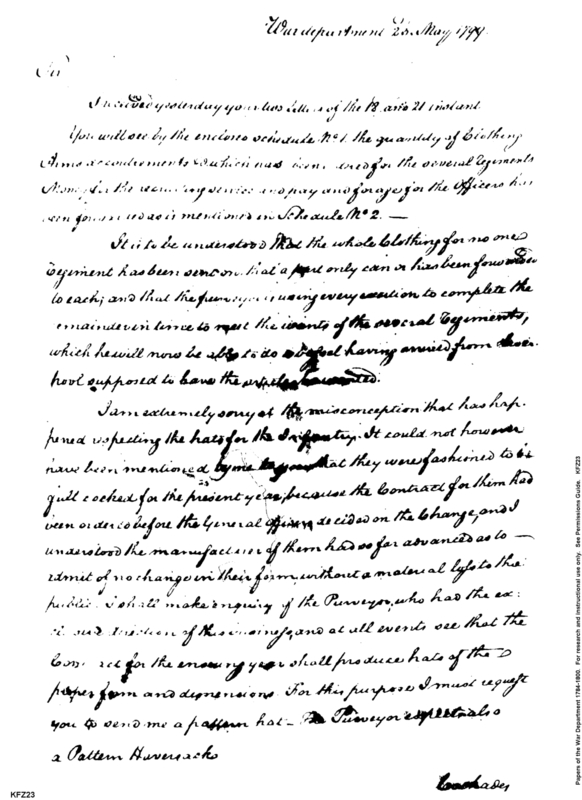 War department 23. May 1799.
Sir
I received yesterday your two letters of the 18 and 21 instant
You will see by the enclosed schedule No 1. the quantity of Clothing
Arms accoutrements &c which has been ordered for the several Regiments
Money for the recruiting service and pay and forage for the Officers has
been forwarded as is mentioned in Schedule No 2. —
It is to be understood that the whole Clothing for no one
Regiment has been sent on, that a part only can or has been forwarded
to each; and that the purveyor is using every exertion to complete the
remainder in time to meet the wants of the several Regiments,
which he will now be able to do a vessel having arrived from Liver-
pool supposed to have the articles
I am extremely sorry at the misconception that has hap-
pened respecting the hats for the Infantry. It could not however
have been mentioned by me to you that they were fashioned to be
full cocked for the present year, because the Contract for them had
been ordered before the General Officers decided on the Change, and I
understood the manufacture of them had so far advanced as to —
admit of no change in their form, without a material loss to the
public. I shall make enquiry of the Purveyor, who had the ex-
direction of this business, and at all events see that the
Contract for the ensuing year shall produce hats of the
proper form and dimensions. For this purpose I must request
you to send me a pattern hat — The Purveyor expects also
a Pattern Haversack
Cockades
KFZ23
Papers of the War Department 1784-1800. For research and instructional use only. See Permissions Guide. KFZ23